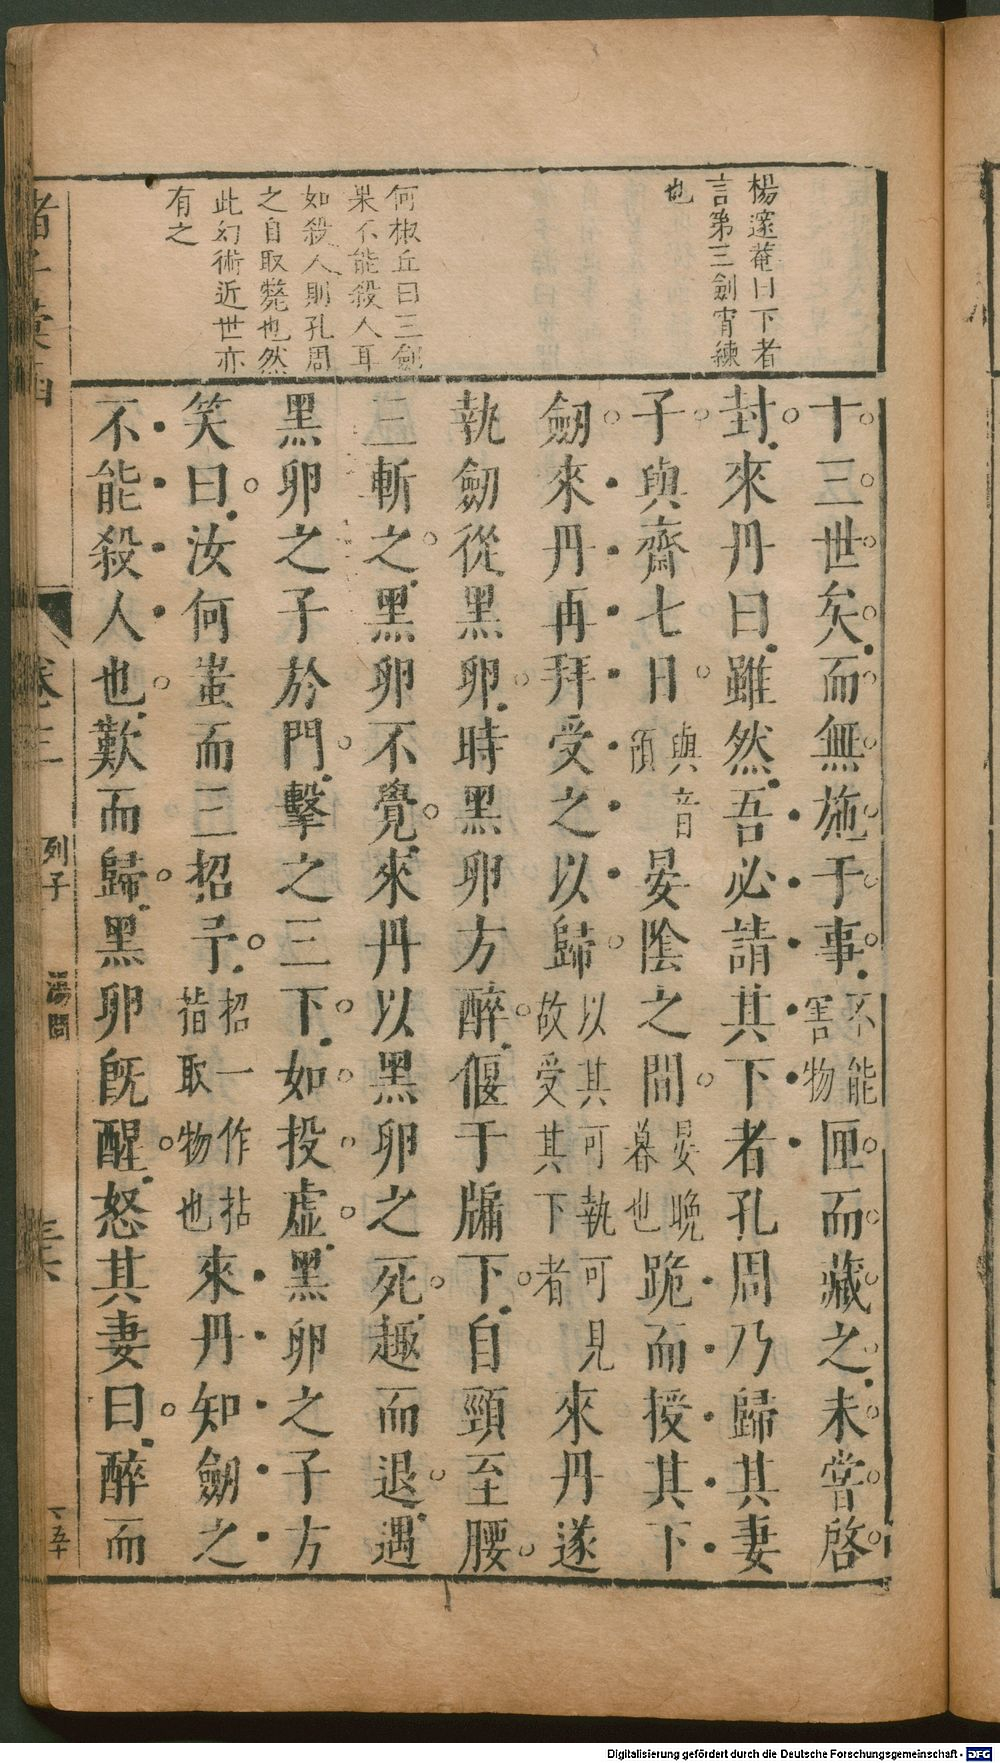 楊邃菴曰下者
言第三劍宵練
也
何椒丘曰三劍
果不能殺人耳
如殺人則孔周
之自取斃也然
此幻術近世亦
有之
十三世矣而無施于事不能害物匣而藏之未嘗啓
封來丹曰雖然吾必請其下者孔周乃歸其妻
子與齋七日與音預晏陰之間晏晚暮也跪而授其下
劒來丹再拜受之以歸以其可執可見故受其下者來丹遂
執劒從黑卵時黑卵方醉偃于牖下自頸至腰
三斬之黑卵不覺來丹以黑卵之死趣而退遇
黑卵之子於門擊之三下如投虛黑卵之子方
笑曰汝何蚩而三招予招一作拈㨖取物也來丹知劒之
不能殺人也歎而歸黑卵旣醒怒其妻曰醉而
卷三
列子
湯問
五十
Digitalisierung gefördert durch die Deutsche Forschungsgemeinschaft - DFG